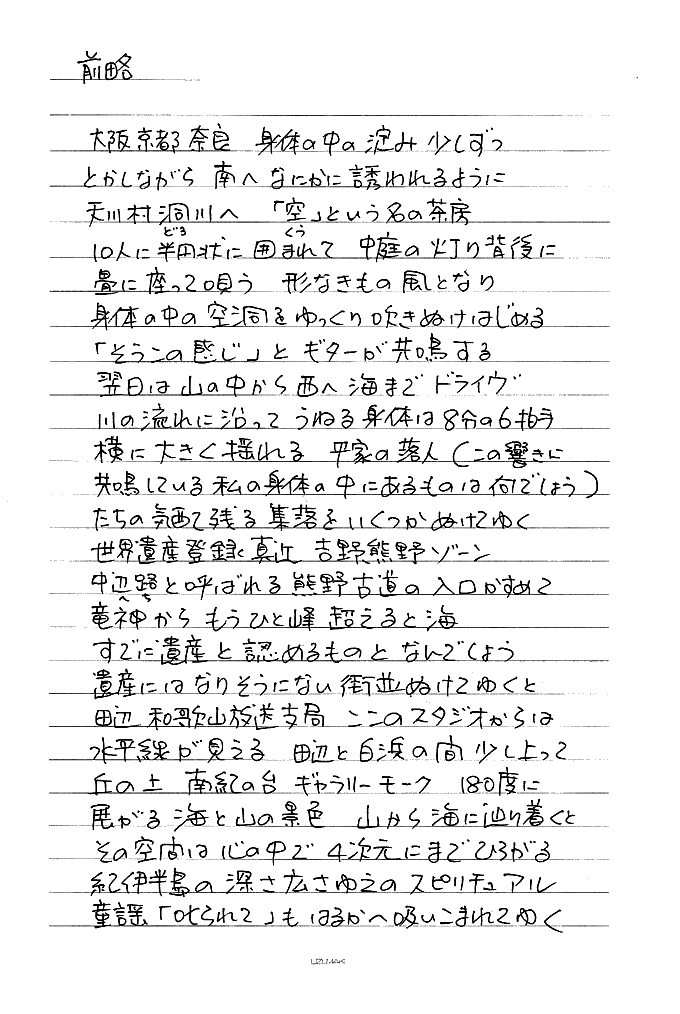 前略
大阪京都奈良 身体の中の淀み少しずつ
とかしながら 南へ なにかに誘われるように
天川村洞川へ 「空」という名の茶房
どろ くう
10人に半円状に囲まれて 中庭の灯り背後に
畳に座って唄う 形なきもの風となり
身体の中の空洞をゆっくり吹きぬけはじめる
「そうこの感じ」と ギターが共鳴する
翌日は山の中から西へ 海まで ドライヴ
川の流れに沿って うねる身体は8分の6拍子
横に大きく揺れる 平家の落人(この響きに
共鳴している私の身体の中にあるものは何でしょう)
たちの気配残る集落を いくつかぬけてゆく
世界遺産登録真近 吉野熊野ゾーン
中辺路と呼ばれる熊野古道の入口かすめて
へち
竜神から もうひと峰 超えると海
すでに遺産と認めるものと なんでしょう
遺産にはなりそうにない街並ぬけてゆくと
田辺 和歌山放送支局 ここのスタジオからは
水平線が見える 田辺と白浜の間 少し上って
丘の上 南紀の台 ギャラリーモーク 180度に
展がる海と山の景色 山から海に辿り着くと
その空間は心の中で 4次元にまでひろがる
紀伊半島の深さ広さゆえの スピリチュアル
童謡「叱られて」も はるかへ吸いこまれてゆく